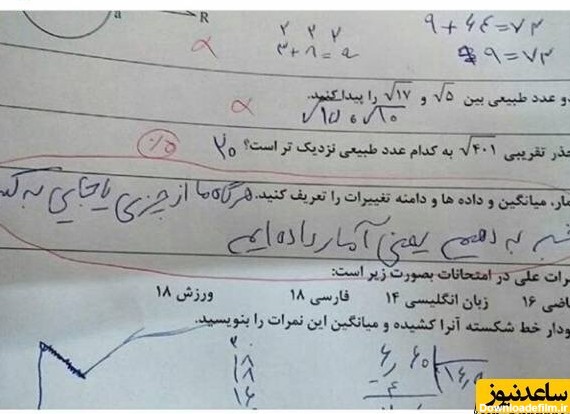 a
R
۹ + ۶۴ = ۷۳
۲ ۲ ۲
۳+۸=۹
۹ = ۷۳
دو عدد طبیعی بین √۵ و √۱۷ را پیدا کنید.
√۱۵ و √۱۰
جذر تقریبی √۴۰۱ به کدام عدد طبیعی نزدیک تر است؟ ۲۰
مار، میانگین و داده ها و دامنه تغییرات را تعریف کنید. هرگاه ما از چیزی یا جایی به کسی
خبر به دهیم یعنی آمار داده ایم
رات علی در امتحانات بصورت زیر است:
اضی ۱۶ زبان انگلیسی ۱۴ فارسی ۱۸ ورزش ۱۸
ودار خط شکسته آنرا کشیده و میانگین این نمرات را بنویسید.
۲۰
۱۸
۱۸
۱۶
ساعدنیوز